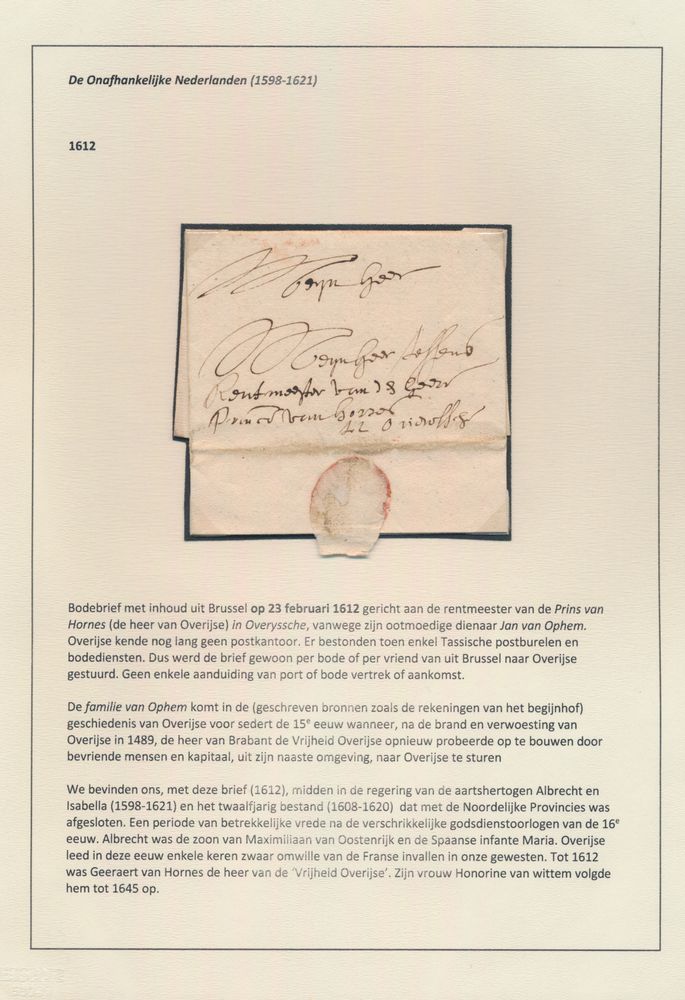 De Onafhankelijke Nederlanden (1598-1621)
1612
Meijn heer
Meijn heer
Rentmeester van
Prince van Hornes
Bodebrief met inhoud uit Brussel op 23 februari 1612 gericht aan de rentmeester van de Prins van
Hornes (de heer van Overijse) in Overyssche, vanwege zijn ootmoedige dienaar Jan van Ophem.
Overijse kende nog lang geen postkantoor. Er bestonden toen enkel Tassische postburelen en
bodediensten. Dus werd de brief gewoon per bode of per vriend van uit Brussel naar Overijse
gestuurd. Geen enkele aanduiding van port of bode vertrek of aankomst.
De familie van Ophem komt in de (geschreven bronnen zoals de rekeningen van het begijnhof)
geschiedenis van Overijse voor sedert de 15e eeuw wanneer, na de brand en verwoesting van
Overijse in 1489, de heer van Brabant de Vrijheid Overijse opnieuw probeerde op te bouwen door
bevriende mensen en kapitaal, uit zijn naaste omgeving, naar Overijse te sturen
We bevinden ons, met deze brief (1612), midden in de regering van de aartshertogen Albrecht en
Isabella (1598-1621) en het twaalfjarig bestand (1608-1620) dat met de Noordelijke Provincies was
afgesloten. Een periode van betrekkelijke vrede na de verschrikkelijke godsdienstoorlogen van de 16e
eeuw. Albrecht was de zoon van Maximiiiaan van Oostenrijk en de Spaanse infante Maria. Overijse
leed in deze eeuw enkele keren zwaar omwille van de Franse invallen in onze gewesten. Tot 1612
was Geeraert van Hornes de heer van de ‘Vrijheid Overijse’. Zijn vrouw Honorine van wittem volgde
hem tot 1645 op.